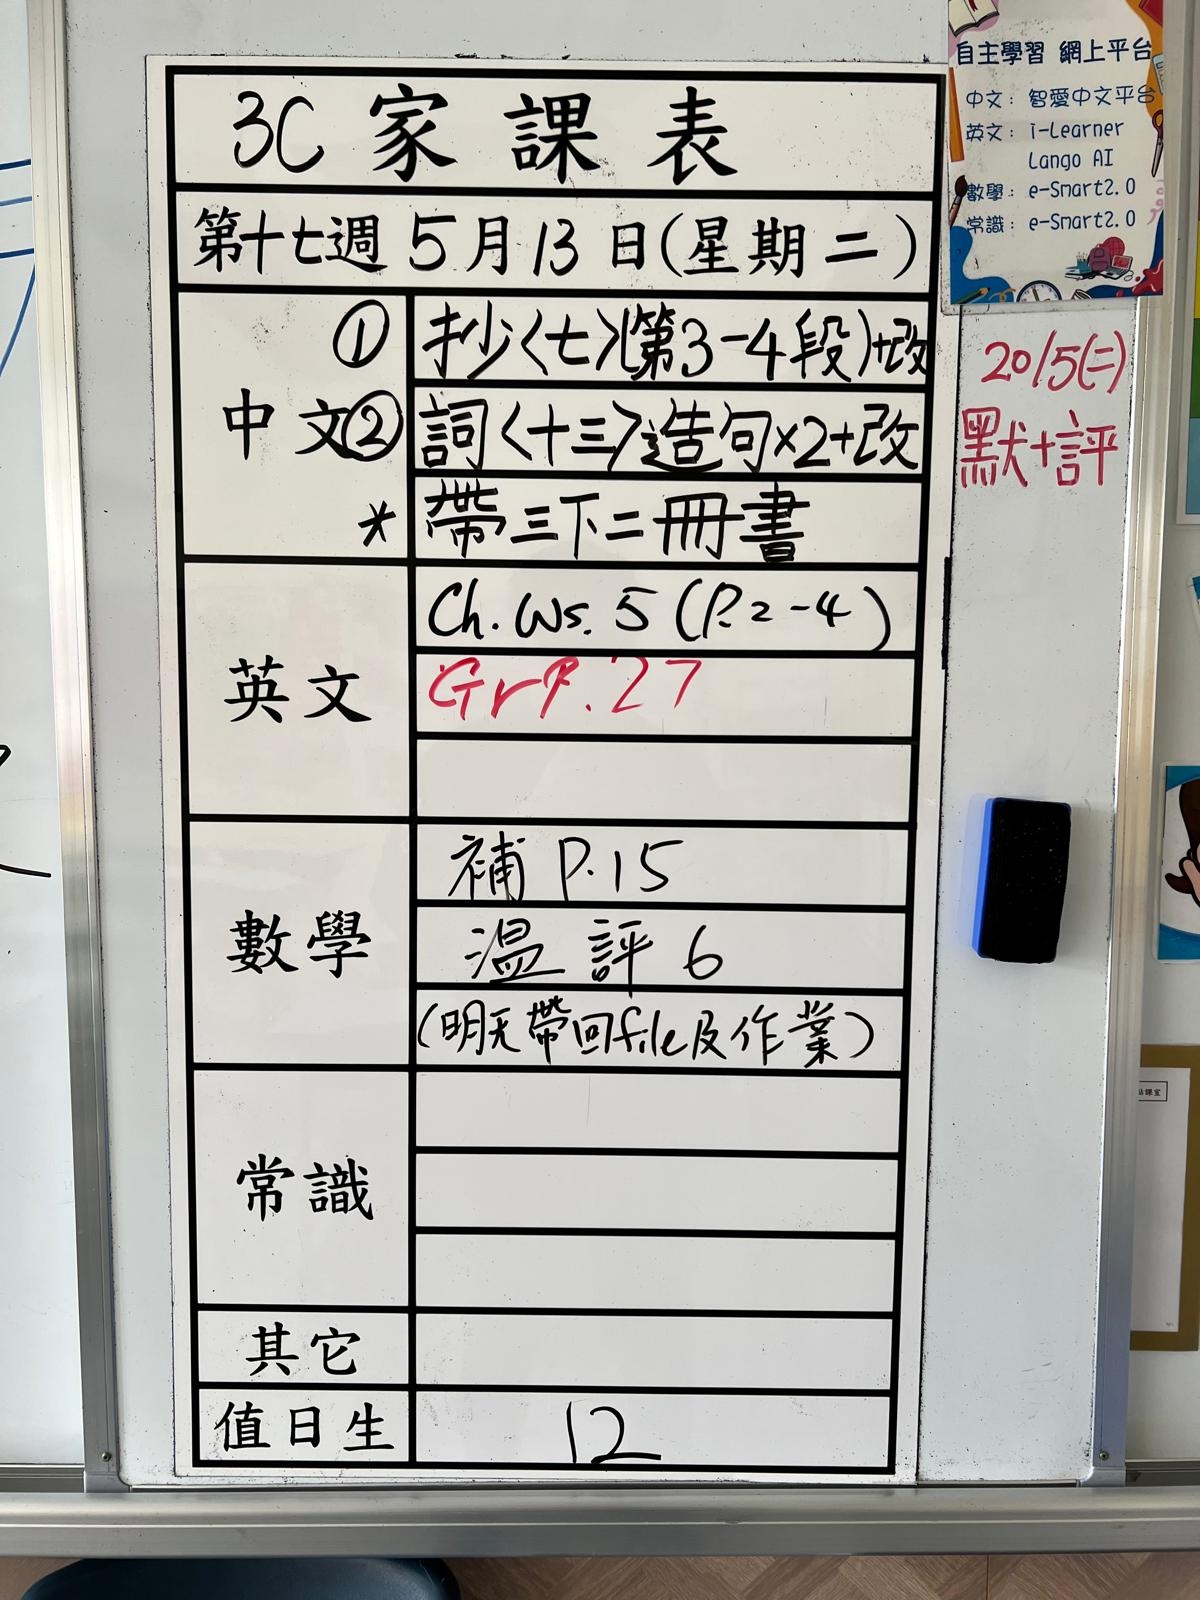 3C 家課表
第十七週 5月13日(星期二)
中文
① 抄〈七〉(第3-4段)+改
② 詞〈十三〉造句×2+改
* 帶三下二冊書
英文
Ch. Ws. 5 (P.2-4)
Gr P.27
數學
補 P.15
溫評6
(明天帶回file及作業)
常識
其它
值日生 12
自主學習 網上平台
中文: 智愛中文平台
英文: i-Learner
Lango AI
數學: e-Smart2.0
常識: e-Smart2.0
20/5(二)
默+評